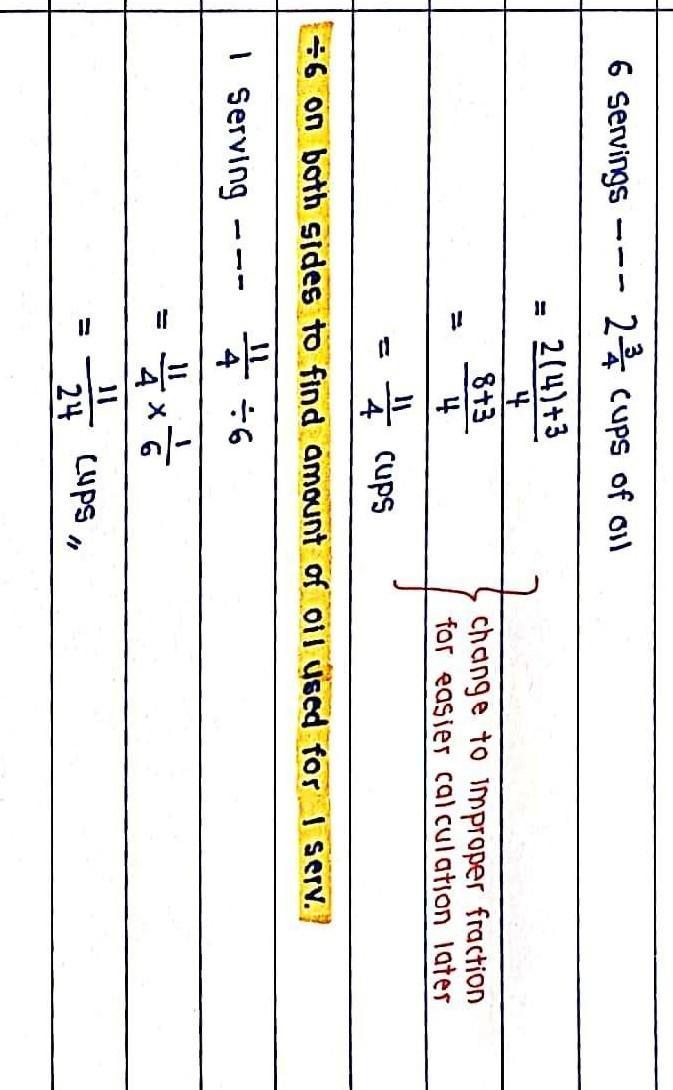 6 servings --- 2 3/4 cups of oil
= 2(4)+3/4
= 8+3/4
= 11/4 cups
change to improper fraction
for easier calculation later
÷6 on both sides to find amount of oil used for 1 serv.
1 serving --- 11/4 ÷6
= 11/4 × 1/6
= 11/24 cups〃